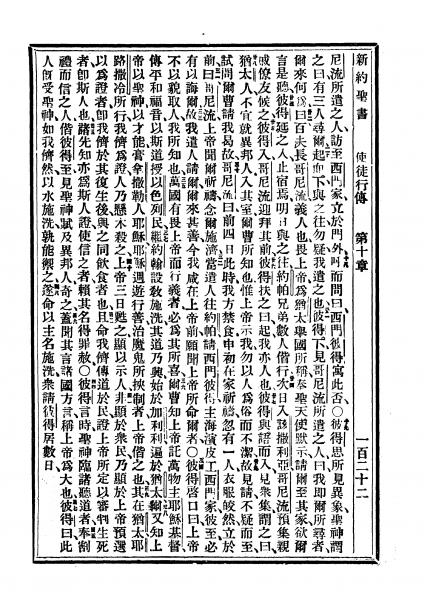 新約聖書 使徒行傳 第十章 一百二十二
尼流所遣之人訪至西門家立於門外呼而問曰西門彼得寓此否〇彼得思所見異象聖神謂
之曰有三人尋爾起而下與之往勿疑我遣之也彼得下見哥尼流所遣之人曰我卽爾所尋者
爾來何爲曰百夫長哥尼流義人也畏上帝爲猶太舉國所稱奉聖天使默示請爾至其家欲爾
言是聽彼得延之人止宿焉明日與之往約帕兄弟數人偕行次日入該撒利亞哥尼流預集親
戚僚友候之彼得入哥尼流迎拜其前彼得扶之曰起我亦人也彼得與語而入見衆集謂之曰
猶太人不宜就異邦人入其室爾曹所知也惟上帝示我勿以人爲俗而不潔故見請不疑而至
試問爾曹請我曷故哥尼流曰前四日此時我方禁食申初在家祈禱忽有一人衣服皎然立於
前曰哥尼流上帝聞爾祈禱念爾施濟當遣人往約帕請西門彼得主海濱皮工西門家彼至必
有以誨爾故我遣人請爾來其善今我咸在上帝前願聞上帝所命爾者〇彼得啓口曰上帝
不以貌取人我所知也萬國有畏上帝而行義者必爲其所喜爾曹知上帝託萬物主耶穌基督
傳平和福音以斯道授以色列民約翰設教施洗其道乃興始於加利利遍於猶太爾又知上
帝以聖神以才能膏拿撒勒人耶穌耶穌遇遊行善治魔鬼所挾制者上帝偕之也其在猶太耶
路撒冷所行我儕爲證人乃懸木殺之上帝三日甦之顯以示人非顯於衆民乃顯於上帝預選
以爲證者卽我儕於其復生後與之同飲食者也且命我儕傳道於民證上帝所定以審判生死
者卽斯人也諸先知亦爲斯人證使信之者賴其名得罪赦〇彼得言時聖神臨諸聽道者奉割
禮而信之人偕彼得至見聖神賦及異邦人奇之蓋聞其言諸國方言稱上帝爲大也彼得曰此
人旣受聖神如我儕然以水施洗孰能禁之遂命以主名施洗衆請彼得居數日